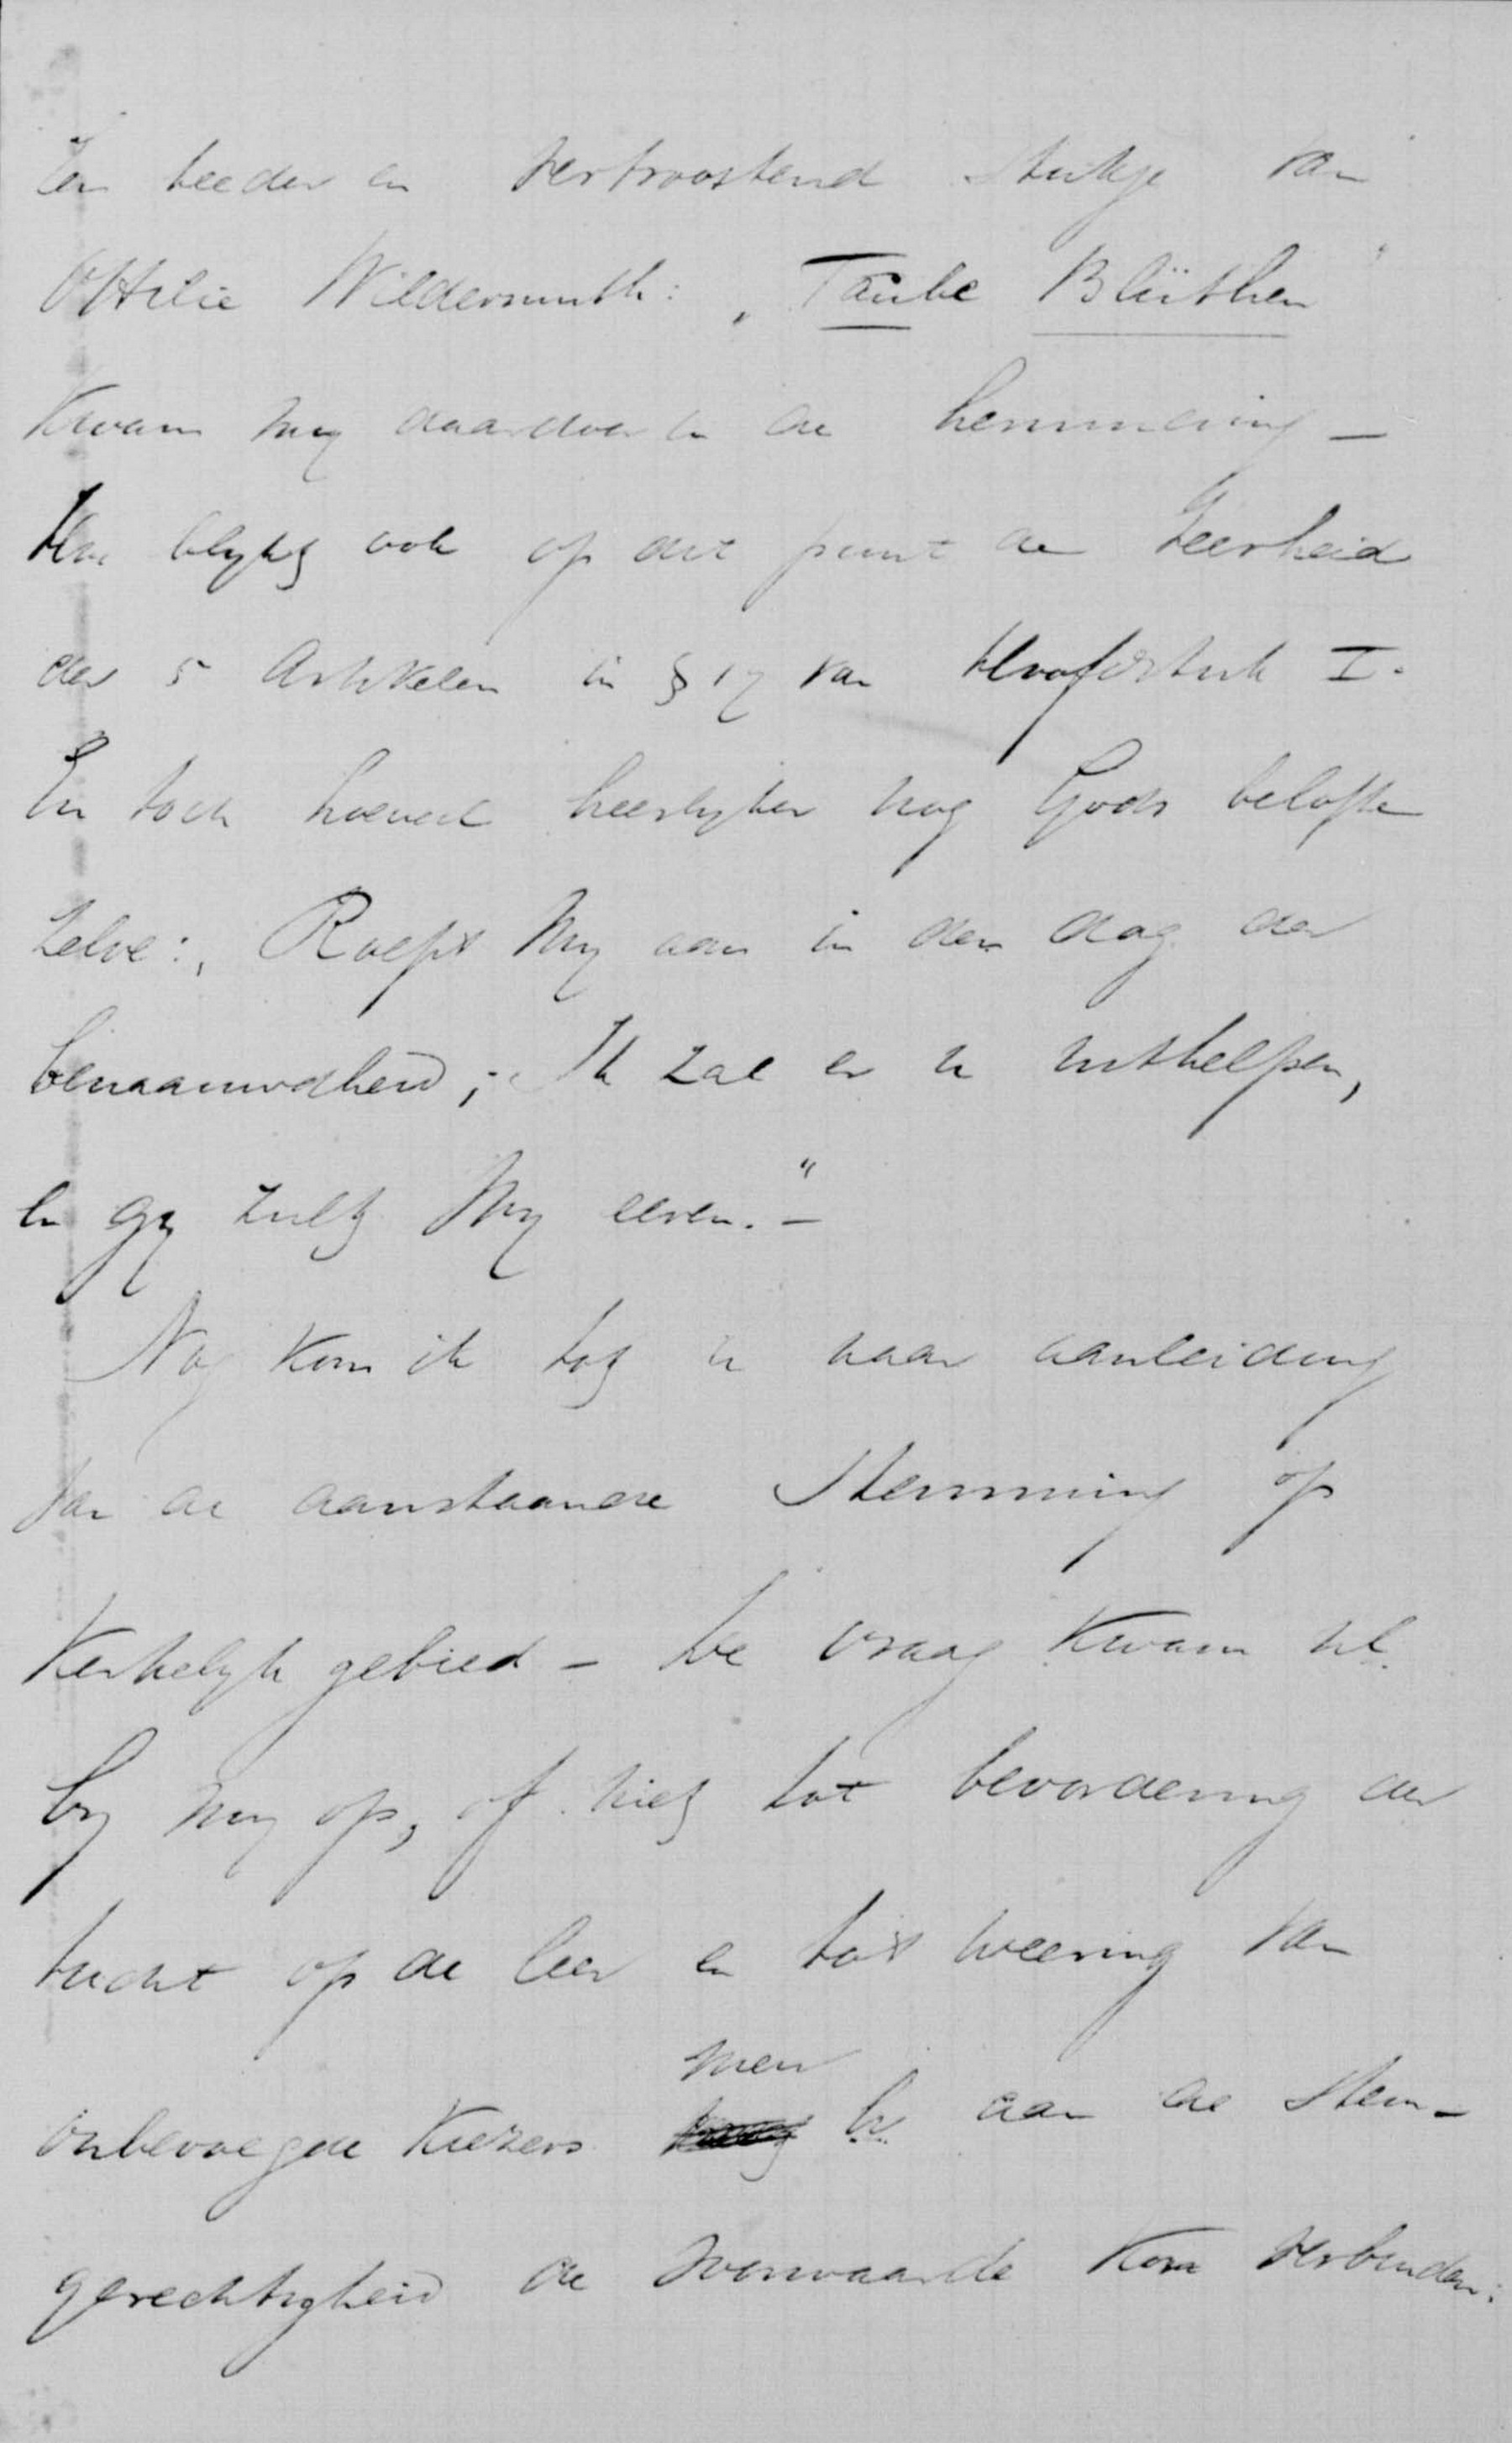 Een teeder en vertroostend stukje van
Ottilie Wildermuth: „Taube Blüthen"
kwam mij daardoor in de herinnering —
Hoe blijkt ook op dit punt de teerheid
der 5 Artikelen in § 17 van Hoofdstuk I.
En toch hoeveel heerlijker nog Gods belofte
zelve: „Roept Mij aan in den dag der
benaauwdheid; Ik zal er u uithelpen,
en gij zult Mij eeren." —
Nog kom ik tot u naar aanleiding
van de aanstaande stemming op
Kerkelijk gebied — De vraag kwam nl.
bij mij op, of niet tot bevordering der
tucht op de leer en tot weering van
onbevoegde Kiezers men bv. aan de stem-
gerechtigheid de voorwaarde kon verbinden: